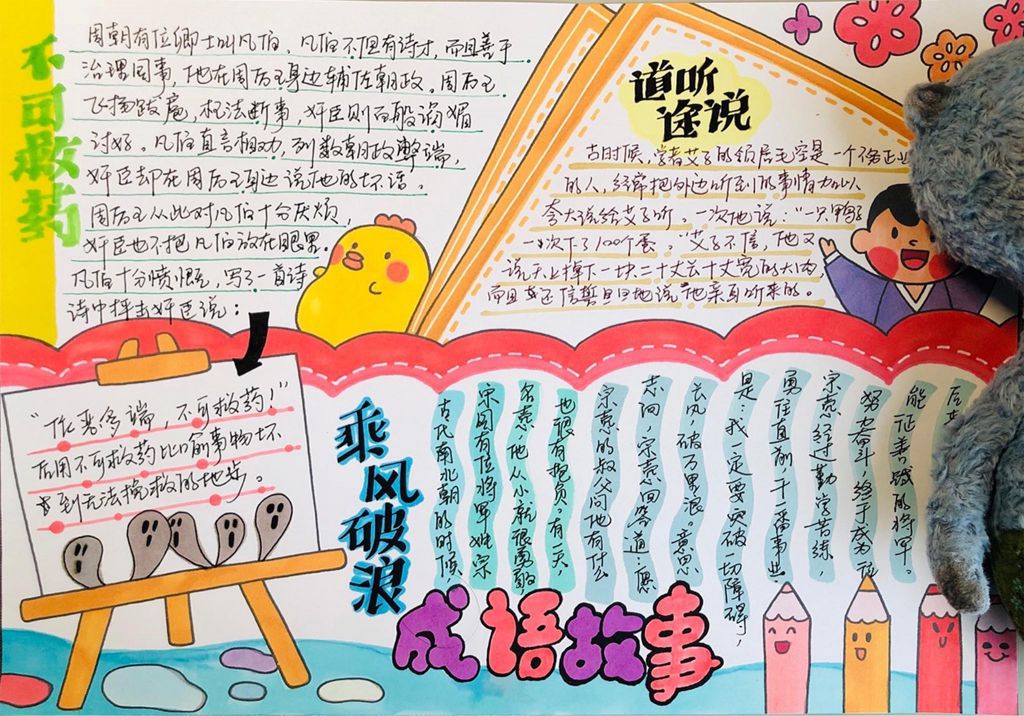 不可救药
周朝有位卿士叫凡伯，凡伯不但有诗才，而且善于
治理国事，他在周厉王身边辅佐朝政。周厉王
飞扬跋扈，枉法断事，奸臣则百般谄媚
讨好。凡伯直言相劝，列数朝政弊端，
奸臣却在周厉王身边说他的坏话。
周厉王从此对凡伯十分厌烦，
奸臣也不把凡伯放在眼里。
凡伯十分愤恨，写了一首诗
诗中抨击奸臣说：
“作恶多端，不可救药！”
后用不可救药比喻事物坏
到无法挽救的地步。
道听
途说
古时候，学者艾子的邻居毛空是一个不务正业
的人，经常把外边听到的事情加以
夸大说给艾子听。一次他说：“一只鸭子
一次下了100个蛋。”艾子不信，他又
说天上掉下一块二十丈长十丈宽的大肉，
而且还信誓旦旦地说“他亲耳听来的。
乘风破浪
古代南北朝的时候，
宋国有位将军姓宗
名悫，他从小就很勇敢，
也很有抱负。有一天，
宗悫的叔父问他有什么
志向，宗悫回答道：“愿
长风，破万里浪。”意思
是：我一定要突破一切障碍，
勇往直前，干一番事业
宗悫经过勤学苦练，
努力奋斗，终于成为一位
能征善战的将军。
成语故事